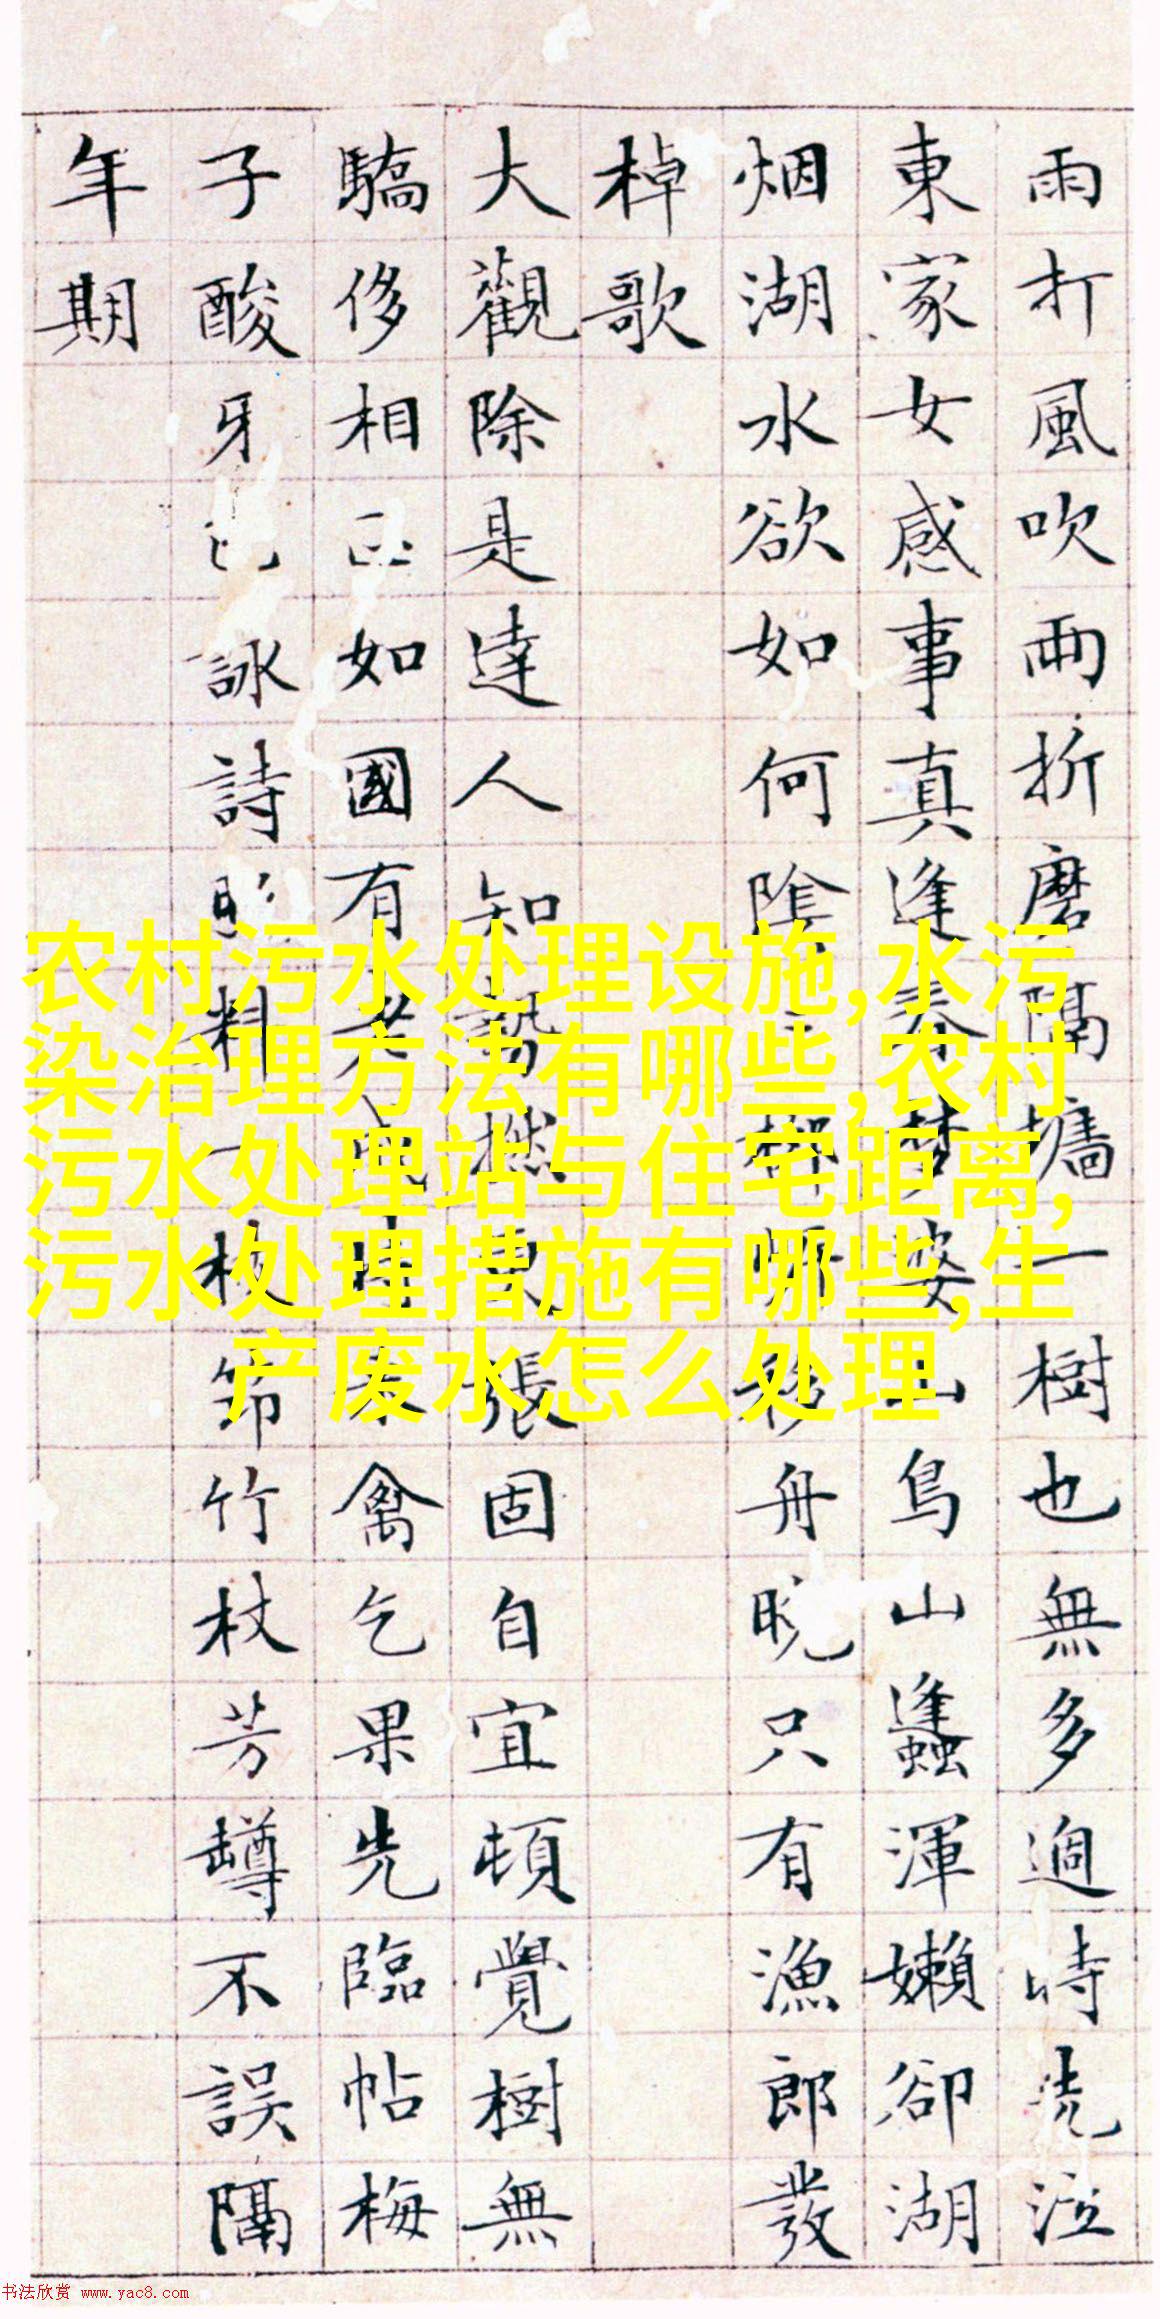 雨打風吹雨折磨隔墻一樹也無多過時洗泣
東家女感事真逢春夢婆山鳥山蠭渾嬾卻湖
烟湖水欲如何陰移舟晚只有漁郎發
棹歌
大觀除是達人知勢撚東張固自宜頓覺樹無
驕侈相如國有老時來禽乞果先臨帖梅
子酸牙詠詩料一枚節竹杖芳罇不誤隔
年期
农村污水处理设施,水污
染治理方法有哪些,农村
污水处理站与住宅距离,
污水处理措施有哪些,生
产废水怎么处理
书法欣赏 www.yac8.com